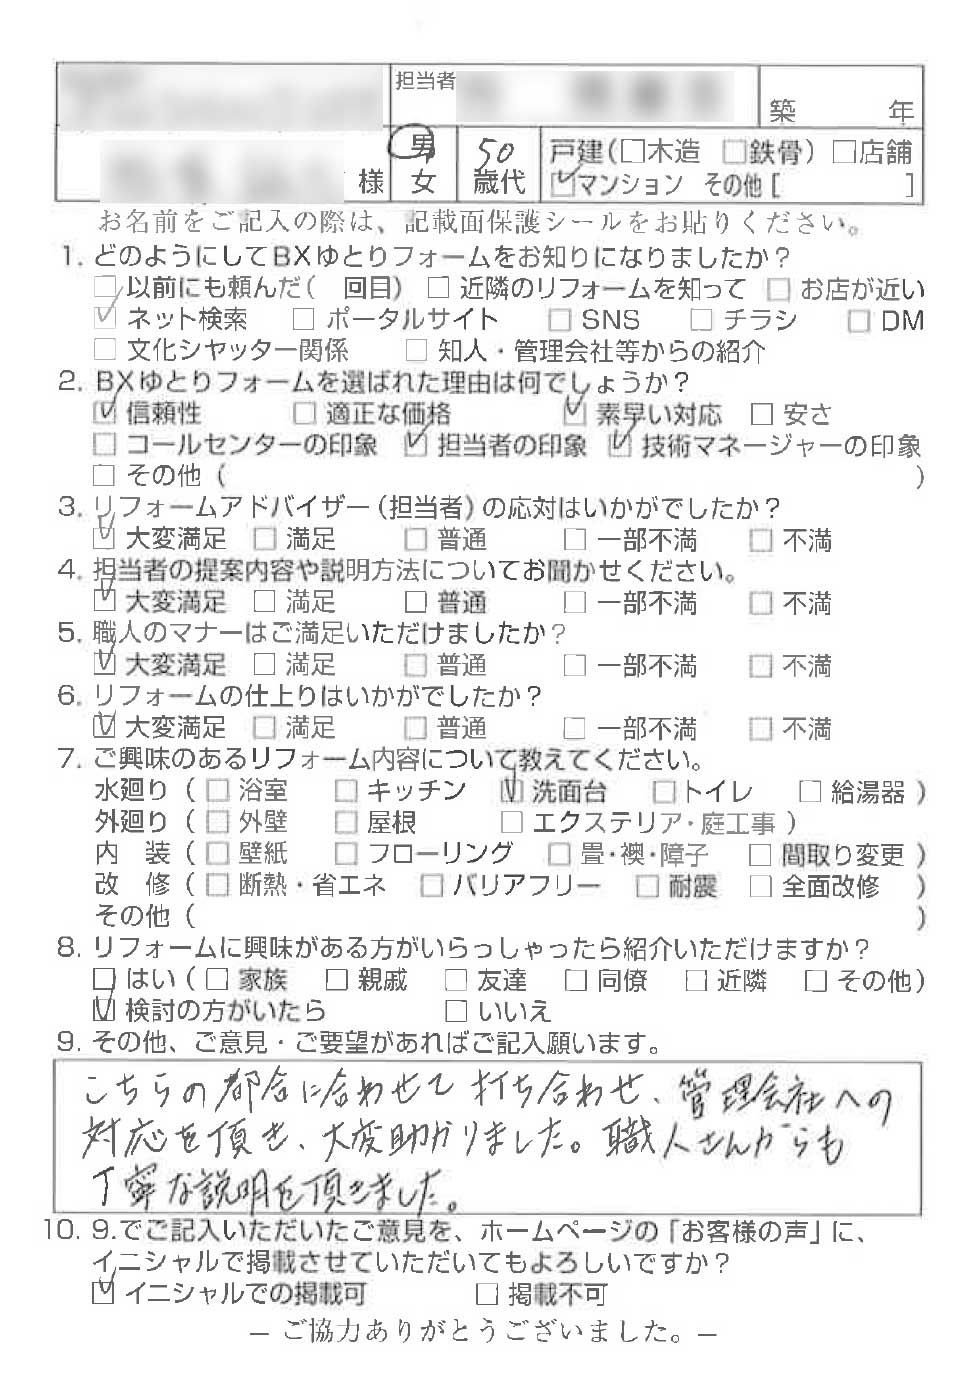 担当者
築 年
様 男 女 50 歳代 戸建(□木造 □鉄骨) □店舗
☑マンション その他[ ]
お名前をご記入の際は、記載面保護シールをお貼りください。
1. どのようにしてBXゆとりフォームをお知りになりましたか?
□以前にも頼んだ( 回目) □近隣のリフォームを知って □お店が近い
☑ネット検索 □ポータルサイト □SNS □チラシ □DM
□文化シヤッター関係 □知人・管理会社等からの紹介
2. BXゆとりフォームを選ばれた理由は何でしょうか?
☑信頼性 □適正な価格 ☑素早い対応 □安さ
□コールセンターの印象 ☑担当者の印象 ☑技術マネージャーの印象
□その他( )
3. リフォームアドバイザー(担当者)の応対はいかがでしたか?
☑大変満足 □満足 □普通 □一部不満 □不満
4. 担当者の提案内容や説明方法についてお聞かせください。
☑大変満足 □満足 □普通 □一部不満 □不満
5. 職人のマナーはご満足いただけましたか?
☑大変満足 □満足 □普通 □一部不満 □不満
6. リフォームの仕上りはいかがでしたか?
☑大変満足 □満足 □普通 □一部不満 □不満
7. ご興味のあるリフォーム内容について教えてください。
水廻り(□浴室 □キッチン ☑洗面台 □トイレ □給湯器)
外廻り(□外壁 □屋根 □エクステリア・庭工事)
内 装(□壁紙 □フローリング □畳・襖・障子 □間取り変更)
改 修(□断熱・省エネ □バリアフリー □耐震 □全面改修 )
その他( )
8. リフォームに興味がある方がいらっしゃったら紹介いただけますか?
□はい(□家族 □親戚 □友達 □同僚 □近隣 □その他)
☑検討の方がいたら □いいえ
9. その他、ご意見・ご要望があればご記入願います。
こちらの都合に合わせて打ち合わせ、管理会社への
対応を頂き、大変助かりました。職人さんからも
丁寧な説明を頂きました。
10. 9.でご記入いただいたご意見を、ホームページの「お客様の声」に、
イニシャルで掲載させていただいてもよろしいですか?
☑イニシャルでの掲載可 □掲載不可
－ご協力ありがとうございました。－